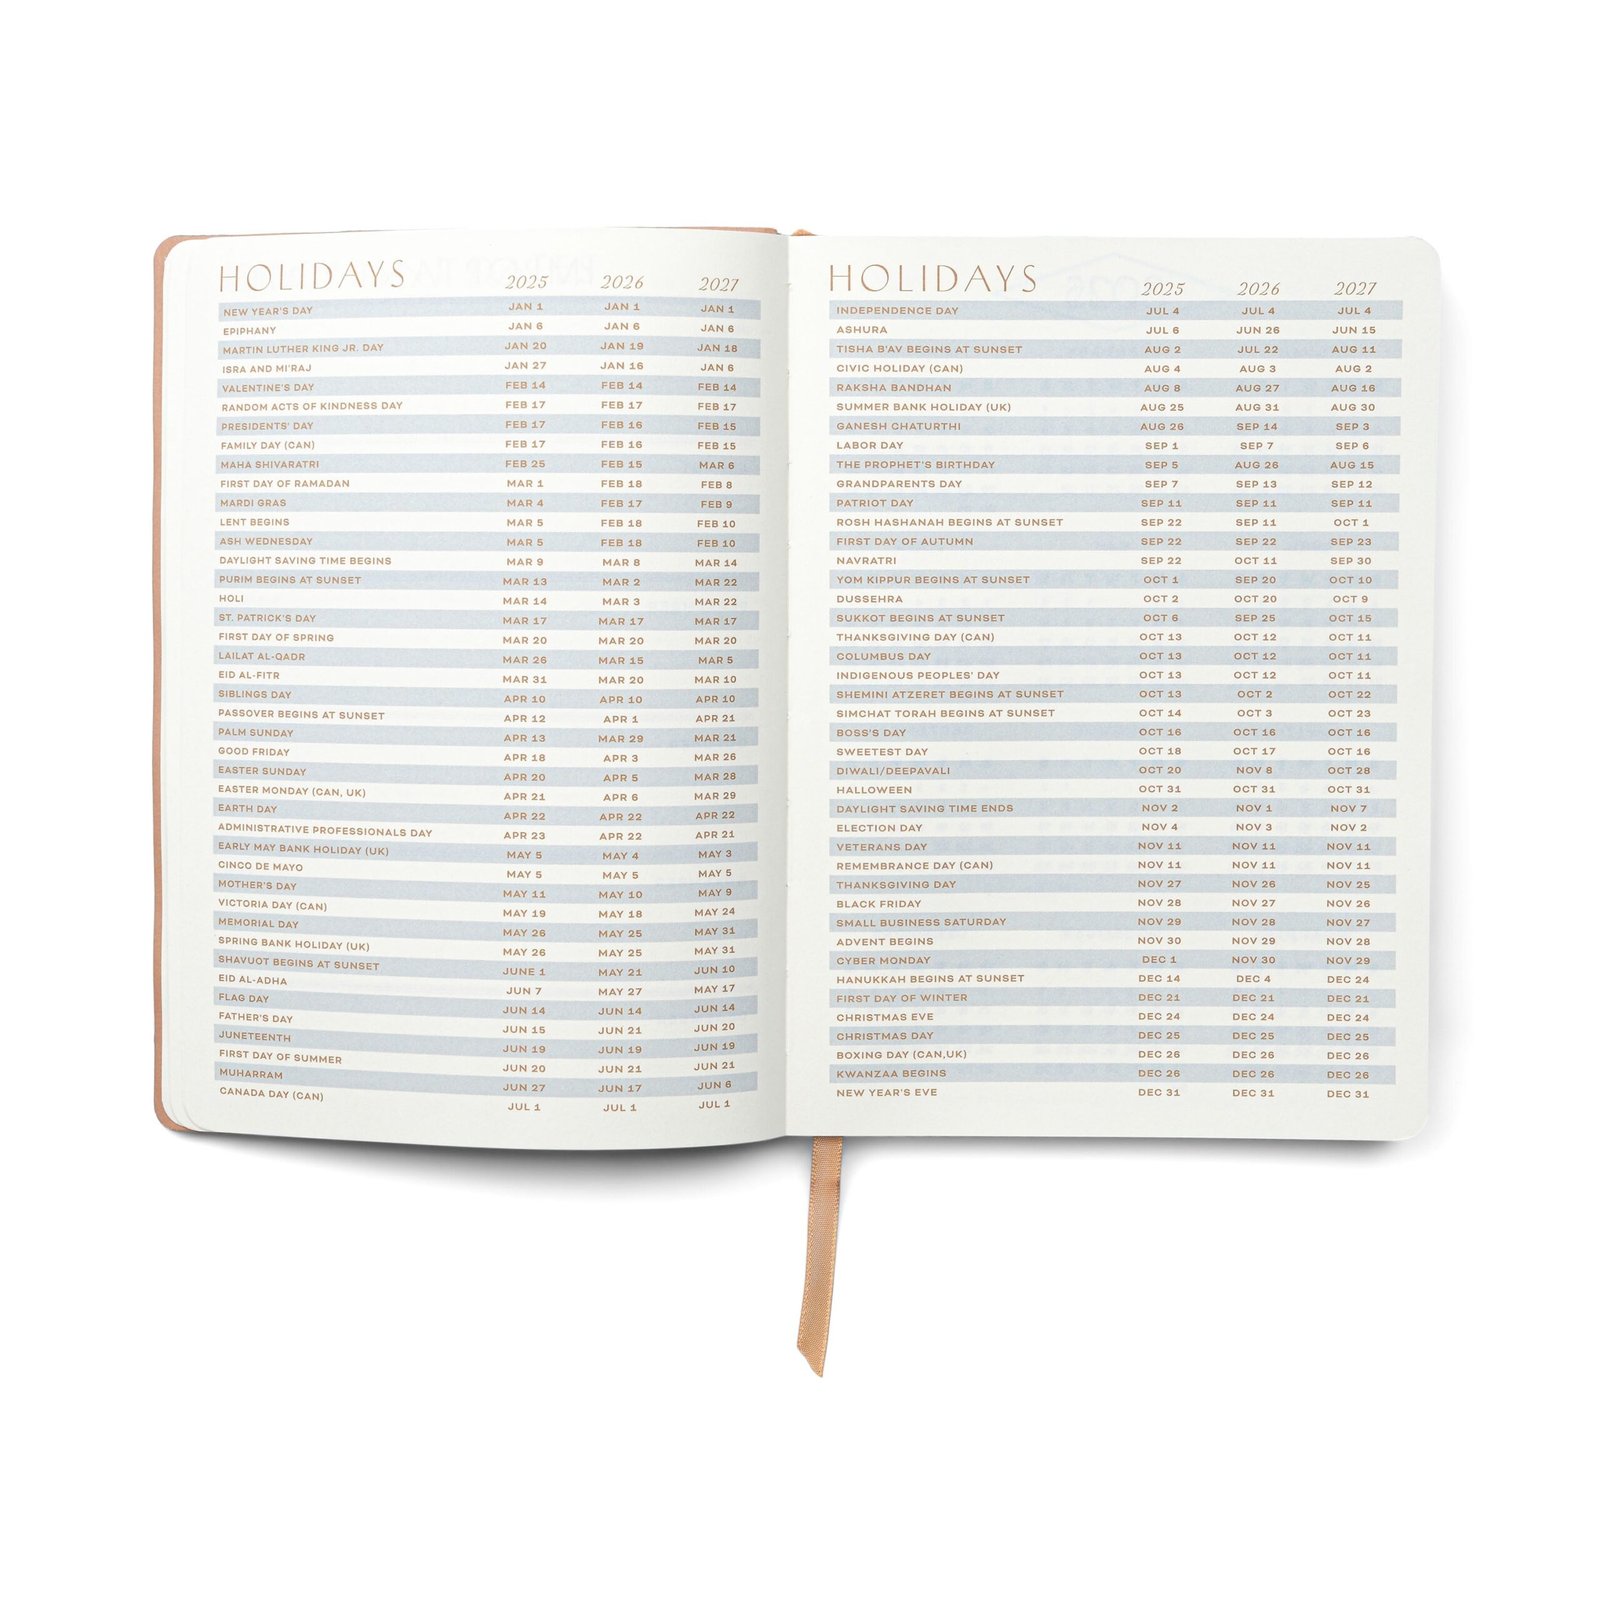 HOLIDAYS 2025 2026 2027
NEW YEAR'S DAY JAN 1 JAN 1 JAN 1
EPIPHANY JAN 6 JAN 6 JAN 6
MARTIN LUTHER KING JR. DAY JAN 20 JAN 19 JAN 18
ISRA AND MI'RAJ JAN 27 JAN 16 JAN 6
VALENTINE'S DAY FEB 14 FEB 14 FEB 14
RANDOM ACTS OF KINDNESS DAY FEB 17 FEB 17 FEB 17
PRESIDENTS' DAY FEB 17 FEB 16 FEB 15
FAMILY DAY (CAN) FEB 17 FEB 16 FEB 15
MAHA SHIVARATRI FEB 25 FEB 15 MAR 6
FIRST DAY OF RAMADAN MAR 1 FEB 18 FEB 8
MARDI GRAS MAR 4 FEB 17 FEB 9
LENT BEGINS MAR 5 FEB 18 FEB 10
ASH WEDNESDAY MAR 5 FEB 18 FEB 10
DAYLIGHT SAVING TIME BEGINS MAR 9 MAR 8 MAR 14
PURIM BEGINS AT SUNSET MAR 13 MAR 2 MAR 22
HOLI MAR 14 MAR 3 MAR 22
ST. PATRICK'S DAY MAR 17 MAR 17 MAR 17
FIRST DAY OF SPRING MAR 20 MAR 20 MAR 20
LAILAT AL-QADR MAR 26 MAR 15 MAR 5
EID AL-FITR MAR 31 MAR 20 MAR 10
SIBLINGS DAY APR 10 APR 10 APR 10
PASSOVER BEGINS AT SUNSET APR 12 APR 1 APR 21
PALM SUNDAY APR 13 MAR 29 MAR 21
GOOD FRIDAY APR 18 APR 3 MAR 26
EASTER SUNDAY APR 20 APR 5 MAR 28
EASTER MONDAY (CAN, UK) APR 21 APR 6 MAR 29
EARTH DAY APR 22 APR 22 APR 22
ADMINISTRATIVE PROFESSIONALS DAY APR 23 APR 22 APR 21
EARLY MAY BANK HOLIDAY (UK) MAY 5 MAY 4 MAY 3
CINCO DE MAYO MAY 5 MAY 5 MAY 5
MOTHER'S DAY MAY 11 MAY 10 MAY 9
VICTORIA DAY (CAN) MAY 19 MAY 18 MAY 24
MEMORIAL DAY MAY 26 MAY 25 MAY 31
SPRING BANK HOLIDAY (UK) MAY 26 MAY 25 MAY 31
SHAVUOT BEGINS AT SUNSET JUNE 1 MAY 21 JUN 10
EID AL-ADHA JUN 7 MAY 27 MAY 17
FLAG DAY JUN 14 JUN 14 JUN 14
FATHER'S DAY JUN 15 JUN 21 JUN 20
JUNETEENTH JUN 19 JUN 19 JUN 19
FIRST DAY OF SUMMER JUN 20 JUN 21 JUN 21
MUHARRAM JUN 27 JUN 17 JUN 6
CANADA DAY (CAN) JUL 1 JUL 1 JUL 1
HOLIDAYS 2025 2026 2027
INDEPENDENCE DAY JUL 4 JUL 4 JUL 4
ASHURA JUL 6 JUN 26 JUN 15
TISHA B'AV BEGINS AT SUNSET AUG 2 JUL 22 AUG 11
CIVIC HOLIDAY (CAN) AUG 4 AUG 3 AUG 2
RAKSHA BANDHAN AUG 8 AUG 27 AUG 16
SUMMER BANK HOLIDAY (UK) AUG 25 AUG 31 AUG 30
GANESH CHATURTHI AUG 26 SEP 14 SEP 3
LABOR DAY SEP 1 SEP 7 SEP 6
THE PROPHET'S BIRTHDAY SEP 5 AUG 26 AUG 15
GRANDPARENTS DAY SEP 7 SEP 13 SEP 12
PATRIOT DAY SEP 11 SEP 11 SEP 11
ROSH HASHANAH BEGINS AT SUNSET SEP 22 SEP 11 OCT 1
FIRST DAY OF AUTUMN SEP 22 SEP 22 SEP 23
NAVRATRI SEP 22 OCT 11 SEP 30
YOM KIPPUR BEGINS AT SUNSET OCT 1 SEP 20 OCT 10
DUSSEHRA OCT 2 OCT 20 OCT 9
SUKKOT BEGINS AT SUNSET OCT 6 SEP 25 OCT 15
THANKSGIVING DAY (CAN) OCT 13 OCT 12 OCT 11
COLUMBUS DAY OCT 13 OCT 12 OCT 11
INDIGENOUS PEOPLES' DAY OCT 13 OCT 12 OCT 11
SHEMINI ATZERET BEGINS AT SUNSET OCT 13 OCT 2 OCT 22
SIMCHAT TORAH BEGINS AT SUNSET OCT 14 OCT 3 OCT 23
BOSS'S DAY OCT 16 OCT 16 OCT 16
SWEETEST DAY OCT 18 OCT 17 OCT 16
DIWALI/DEEPAVALI OCT 20 NOV 8 OCT 28
HALLOWEEN OCT 31 OCT 31 OCT 31
DAYLIGHT SAVING TIME ENDS NOV 2 NOV 1 NOV 7
ELECTION DAY NOV 4 NOV 3 NOV 2
VETERANS DAY NOV 11 NOV 11 NOV 11
REMEMBRANCE DAY (CAN) NOV 11 NOV 11 NOV 11
THANKSGIVING DAY NOV 27 NOV 26 NOV 25
BLACK FRIDAY NOV 28 NOV 27 NOV 26
SMALL BUSINESS SATURDAY NOV 29 NOV 28 NOV 27
ADVENT BEGINS NOV 30 NOV 29 NOV 28
CYBER MONDAY DEC 1 NOV 30 NOV 29
HANUKKAH BEGINS AT SUNSET DEC 14 DEC 4 DEC 24
FIRST DAY OF WINTER DEC 21 DEC 21 DEC 21
CHRISTMAS EVE DEC 24 DEC 24 DEC 24
CHRISTMAS DAY DEC 25 DEC 25 DEC 25
BOXING DAY (CAN,UK) DEC 26 DEC 26 DEC 26
KWANZAA BEGINS DEC 26 DEC 26 DEC 26
NEW YEAR'S EVE DEC 31 DEC 31 DEC 31